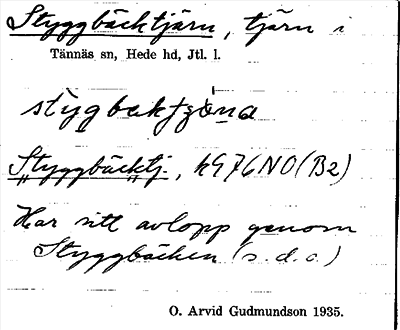 Styggbäcktjärn, tjärn i
Tännäs sn, Hede hd, Jtl. l.
"Styggbäcktj.", k976NO(B2)
Har sitt avlopp genom
Styggbäcken (s.d.o.)
O. Arvid Gudmundson 1935.